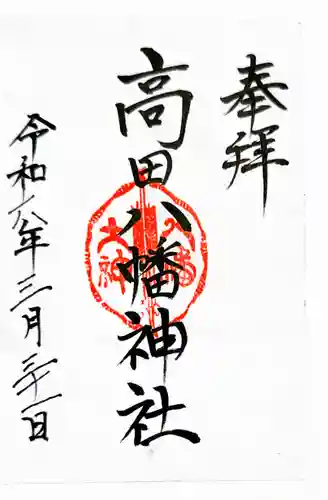 奉拝
高田八幡神社
令和六年三月三十一日